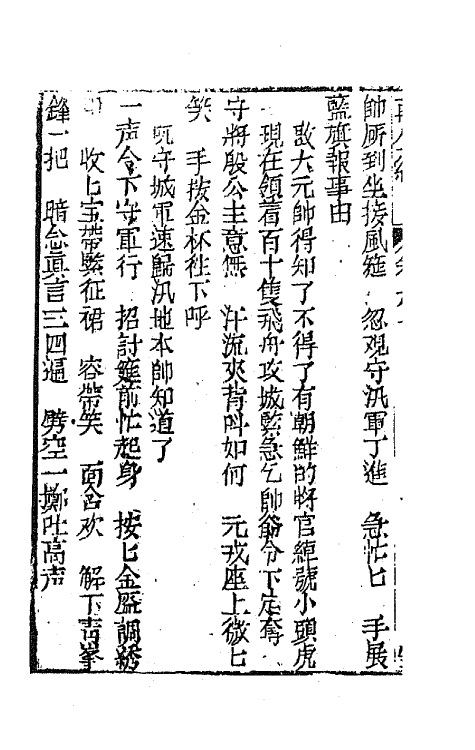 帥厮到坐接風筵　忽观守汛軍丁進　急忙匕　手展
藍旗報事由
啟大元帥得知了不得了有朝鮮的將官綽號小頭虎
現在領着百十隻飛舟攻城緊急乞帥爺令下定奪
守將殷公主意無　汗流夾背呌如何　元戎座上微匕
笑　手按金杯徃下呼
吭守城軍速歸汛地本帥知道了
一声令下守軍行　招討筵前忙起身　按匕金盔調綉
収匕宝帶緊征裙　容帶笑　面含欢　解下青峯
鋒一把　暗念眞言三四遍　劈空一擲吐高声